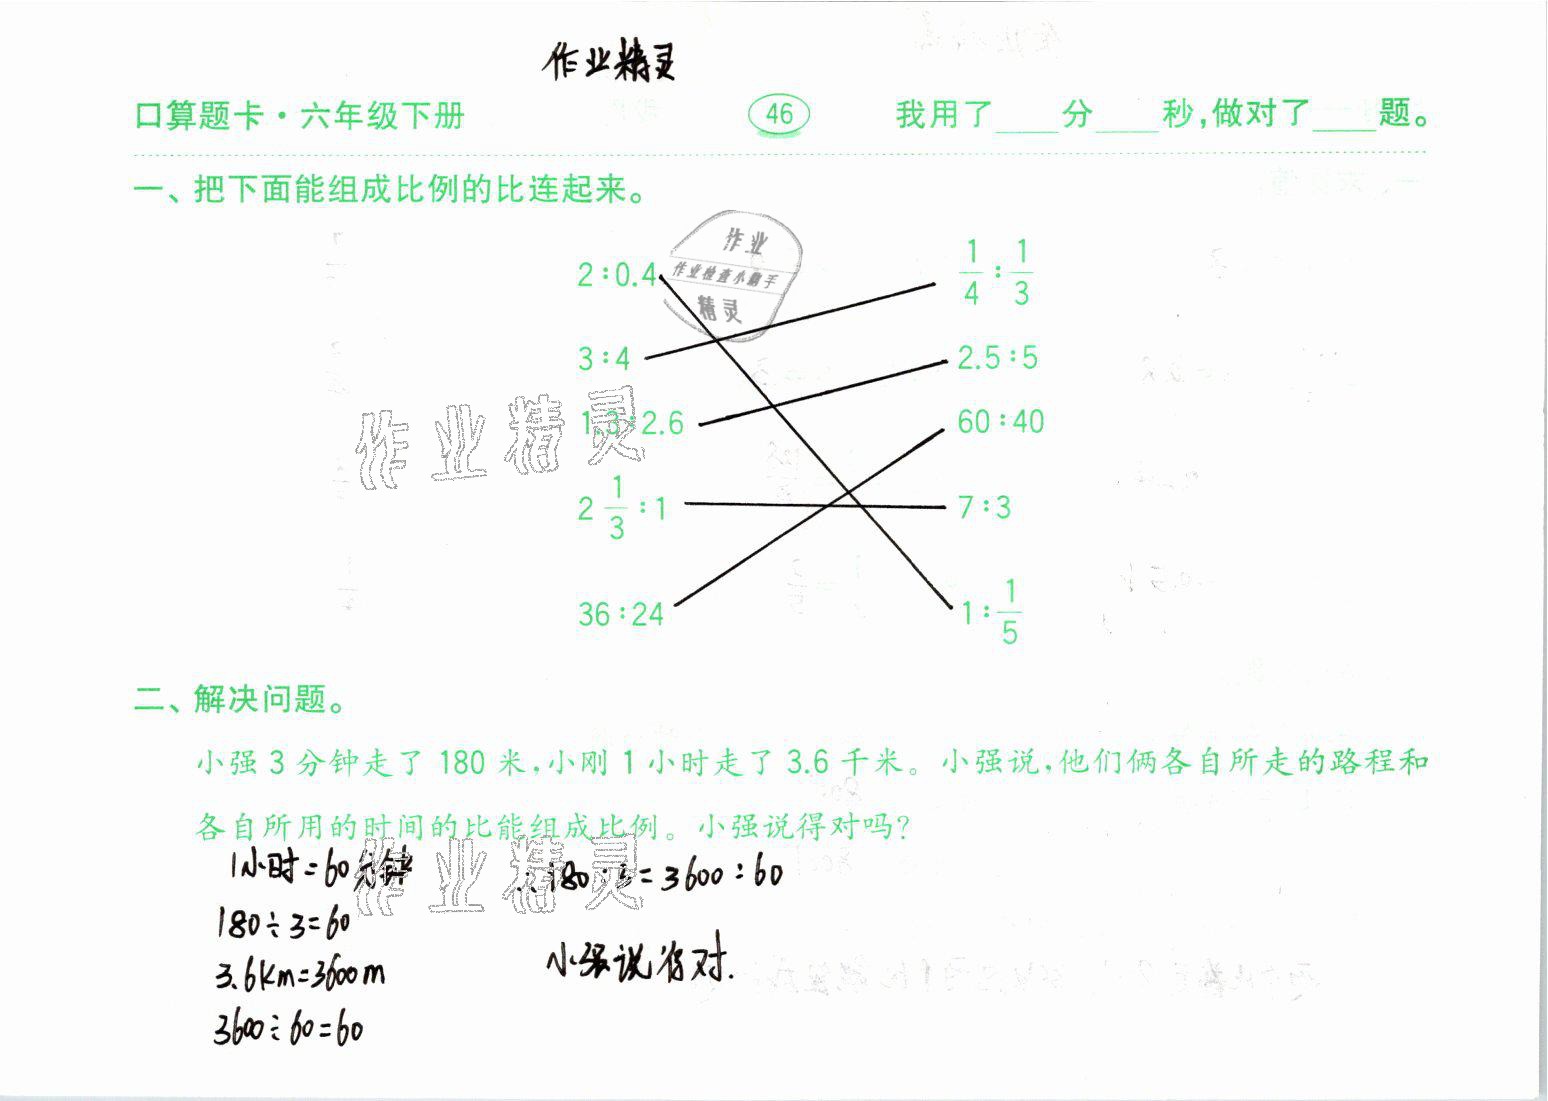 作业精灵
口算题卡·六年级下册 46 我用了____分____秒,做对了____题。
一、把下面能组成比例的比连起来。
作业
作业检查小助手
精灵
2:0.4 1/4:1/3
3:4 2.5:5
1.3:2.6 60:40
作业精灵
2 1/3:1 7:3
36:24 1:1/5
二、解决问题。
小强3分钟走了180米,小刚1小时走了3.6千米。小强说,他们俩各自所走的路程和
各自所用的时间的比能组成比例。小强说得对吗?
作业精灵
1小时=60分钟 ∴180:3=3600:60
180÷3=60
小强说得对.
3.6km=3600m
3600÷60=60